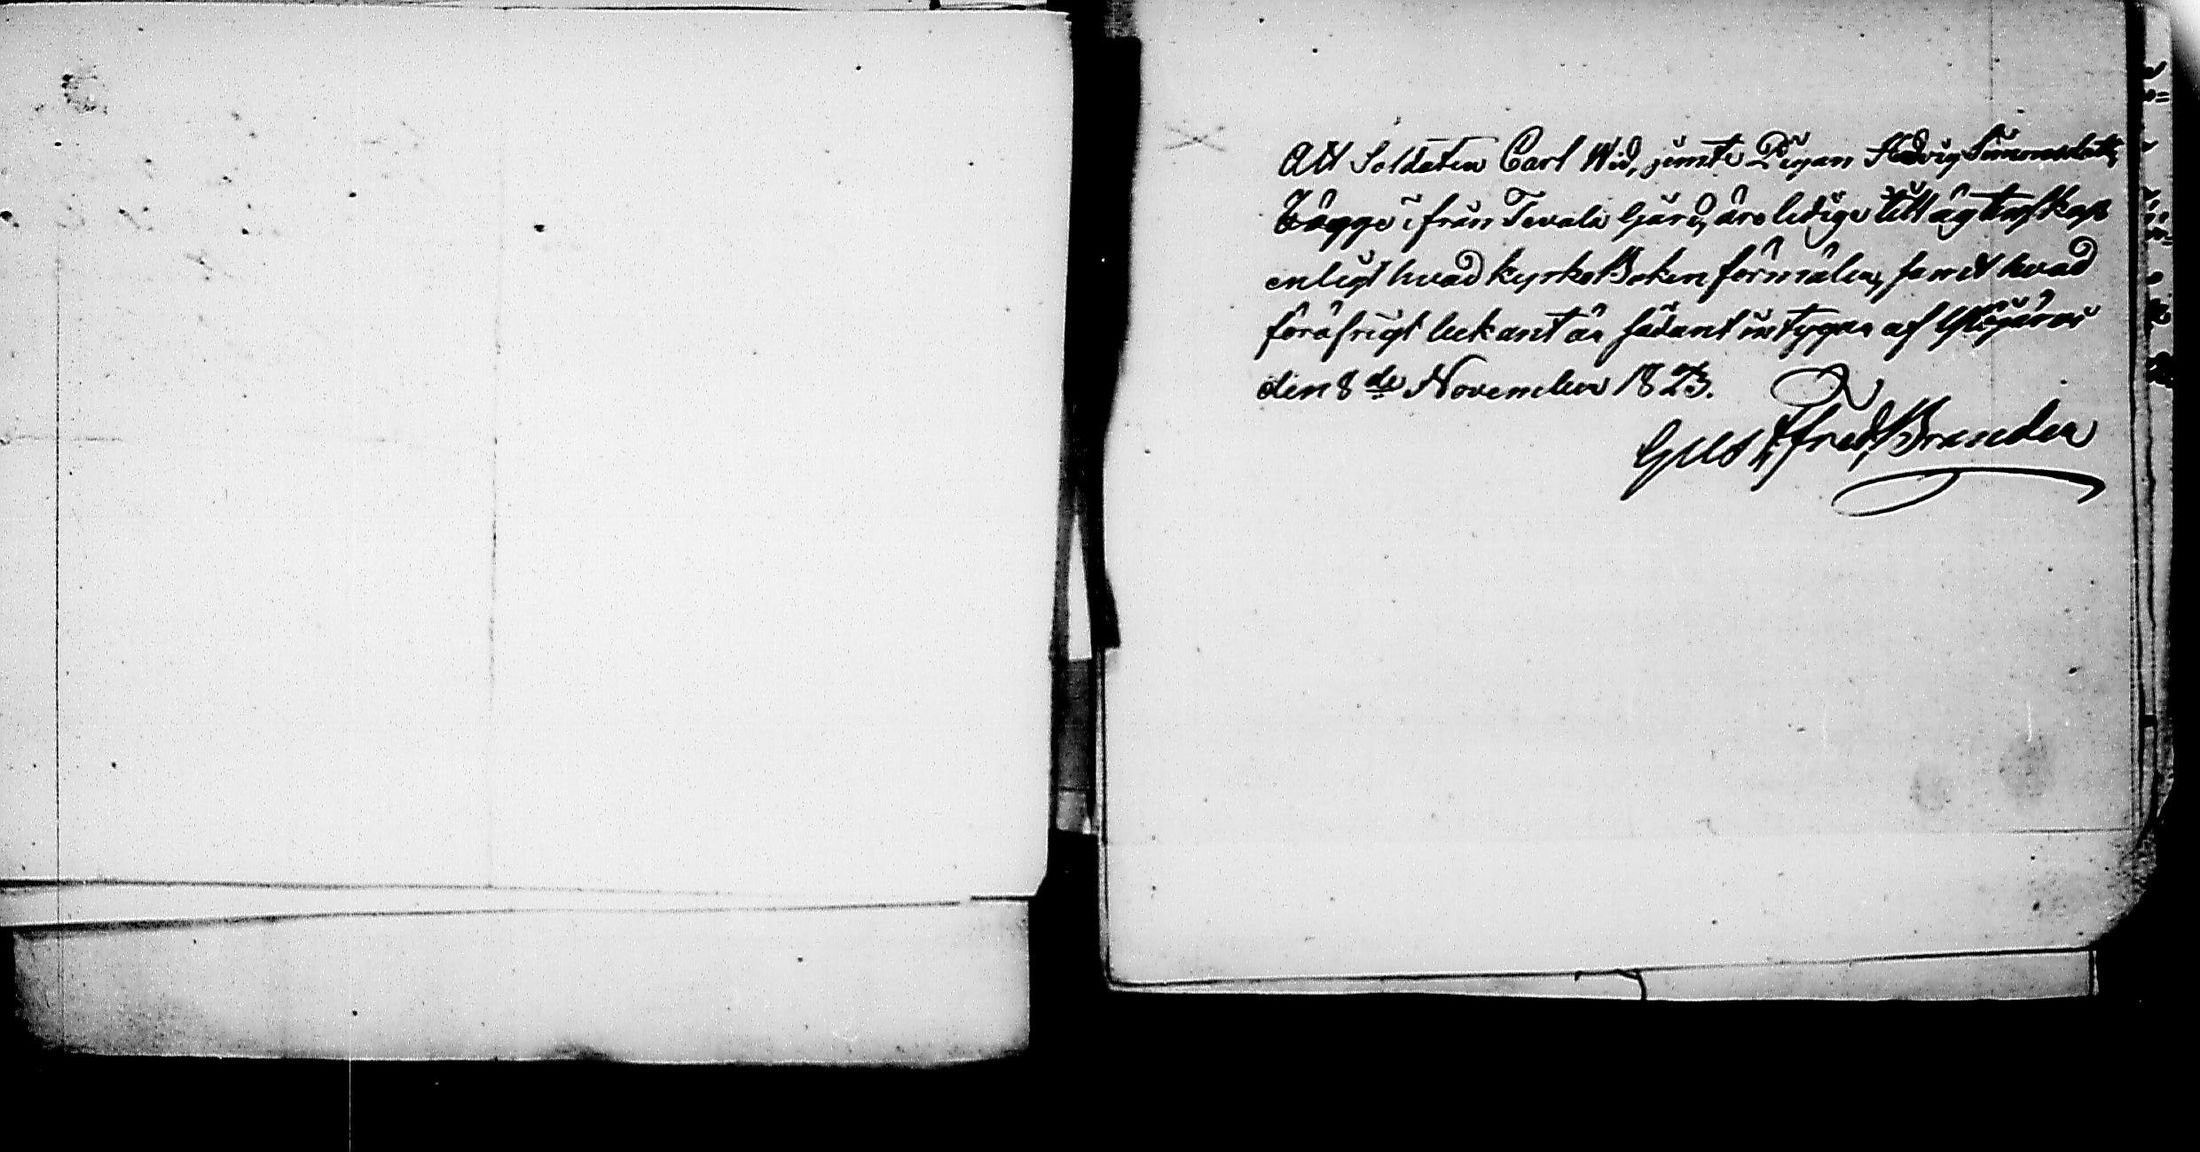 Att Soldaten Carl Wid, jemte Pigan Hedvig Simonsdotter,
bägge ifrån Tevala Gård, äro ledige till ägtenskap
enligt hvad kyrkoBoken förmäler, samt hvad
föröfrigt bekant är sådant intygar af
den 8de November 1823.
Gust. Fred. Brander